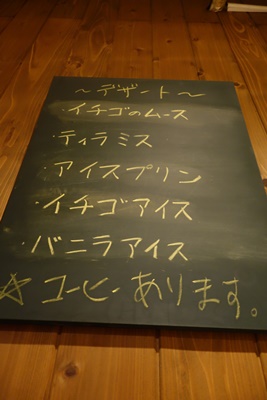 ～デザート～
・イチゴのムース
・ティラミス
・アイスプリン
・イチゴアイス
・バニラアイス
☆コーヒーあります。